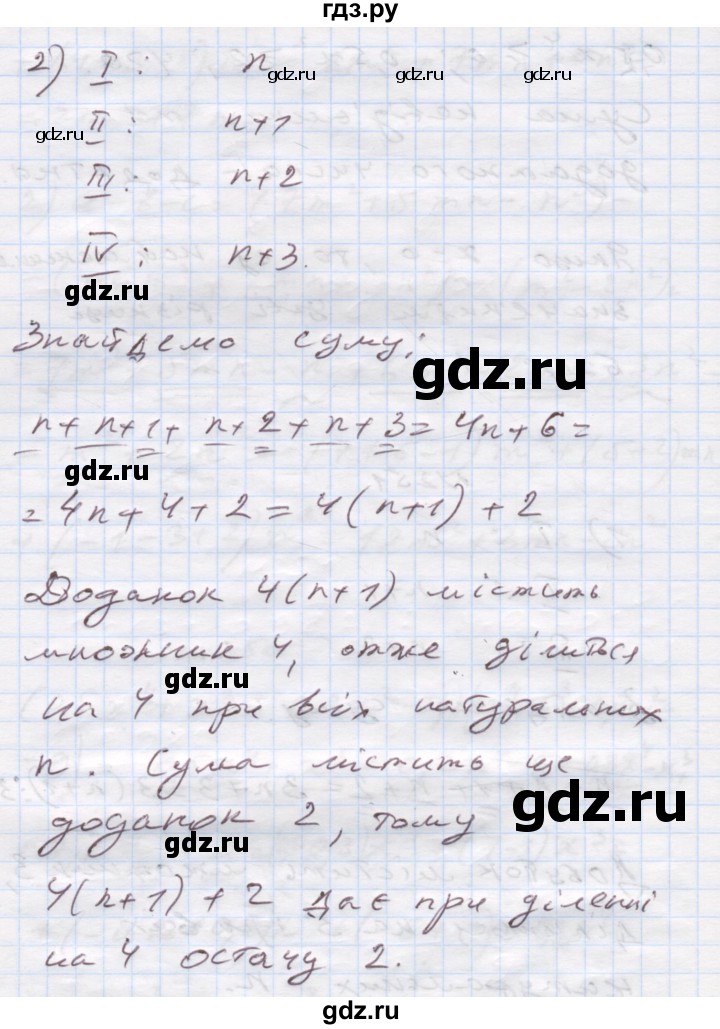 гдз.ру
2) I : n
gdz.ru gdz.ru gdz.ru
II : n+1
gdz.ru
III : n+2
IV : n+3.
gdz.ru
Знайдемо суму:
gdz.ru
n + n+1 + n+2 + n+3 = 4n+6 =
gdz.ru
= 4n+4+2 = 4(n+1)+2
Доданок 4(n+1) містить
множник 4, отже ділиться
gdz.ru
на 4 при всіх натуральних
n. Сума містить ще
gdz.ru
доданок 2, тому
gdz.ru
4(n+1)+2 дає при діленні
на 4 остачу 2.
gdz.ru